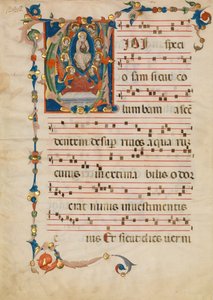 IDI speci
o sam sicut co
lum bam ascen
dentem desup rivos a qua rum
cuius inextima bilis odor
erat nimis in vestimentis
eius Et sicut dies verni